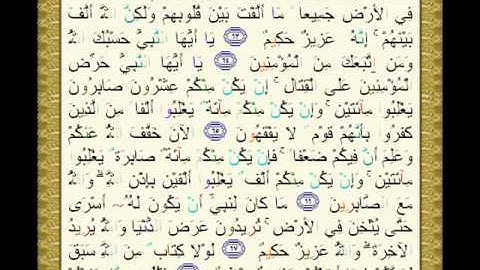 فِي الْأَرْضِ جَمِيعًا مَا أَلَّفْتَ بَيْنَ قُلُوبِهِمْ وَلَكِنَّ اللَّهَ أَلَّفَ
بَيْنَهُمْ ۚ إِنَّهُ عَزِيزٌ حَكِيمٌ ٦٣ يَا أَيُّهَا النَّبِيُّ حَسْبُكَ اللَّهُ
وَمَنِ اتَّبَعَكَ مِنَ الْمُؤْمِنِينَ ٦٤ يَا أَيُّهَا النَّبِيُّ حَرِّضِ
الْمُؤْمِنِينَ عَلَى الْقِتَالِ ۚ إِنْ يَكُنْ مِنْكُمْ عِشْرُونَ صَابِرُونَ
يَغْلِبُوا مِائَتَيْنِ ۚ وَإِنْ يَكُنْ مِنْكُمْ مِائَةٌ يَغْلِبُوا أَلْفًا مِنَ الَّذِينَ
كَفَرُوا بِأَنَّهُمْ قَوْمٌ لَا يَفْقَهُونَ ٦٥ الْآنَ خَفَّفَ اللَّهُ عَنْكُمْ
وَعَلِمَ أَنَّ فِيكُمْ ضَعْفًا ۚ فَإِنْ يَكُنْ مِنْكُمْ مِائَةٌ صَابِرَةٌ يَغْلِبُوا
مِائَتَيْنِ ۚ وَإِنْ يَكُنْ مِنْكُمْ أَلْفٌ يَغْلِبُوا أَلْفَيْنِ بِإِذْنِ اللَّهِ ۗ وَاللَّهُ
مَعَ الصَّابِرِينَ ٦٦ مَا كَانَ لِنَبِيٍّ أَنْ يَكُونَ لَهُ أَسْرَى
حَتَّى يُثْخِنَ فِي الْأَرْضِ ۚ تُرِيدُونَ عَرَضَ الدُّنْيَا وَاللَّهُ يُرِيدُ
الْآخِرَةَ ۗ وَاللَّهُ عَزِيزٌ حَكِيمٌ ٦٧ لَوْلَا كِتَابٌ مِنَ اللَّهِ سَبَقَ